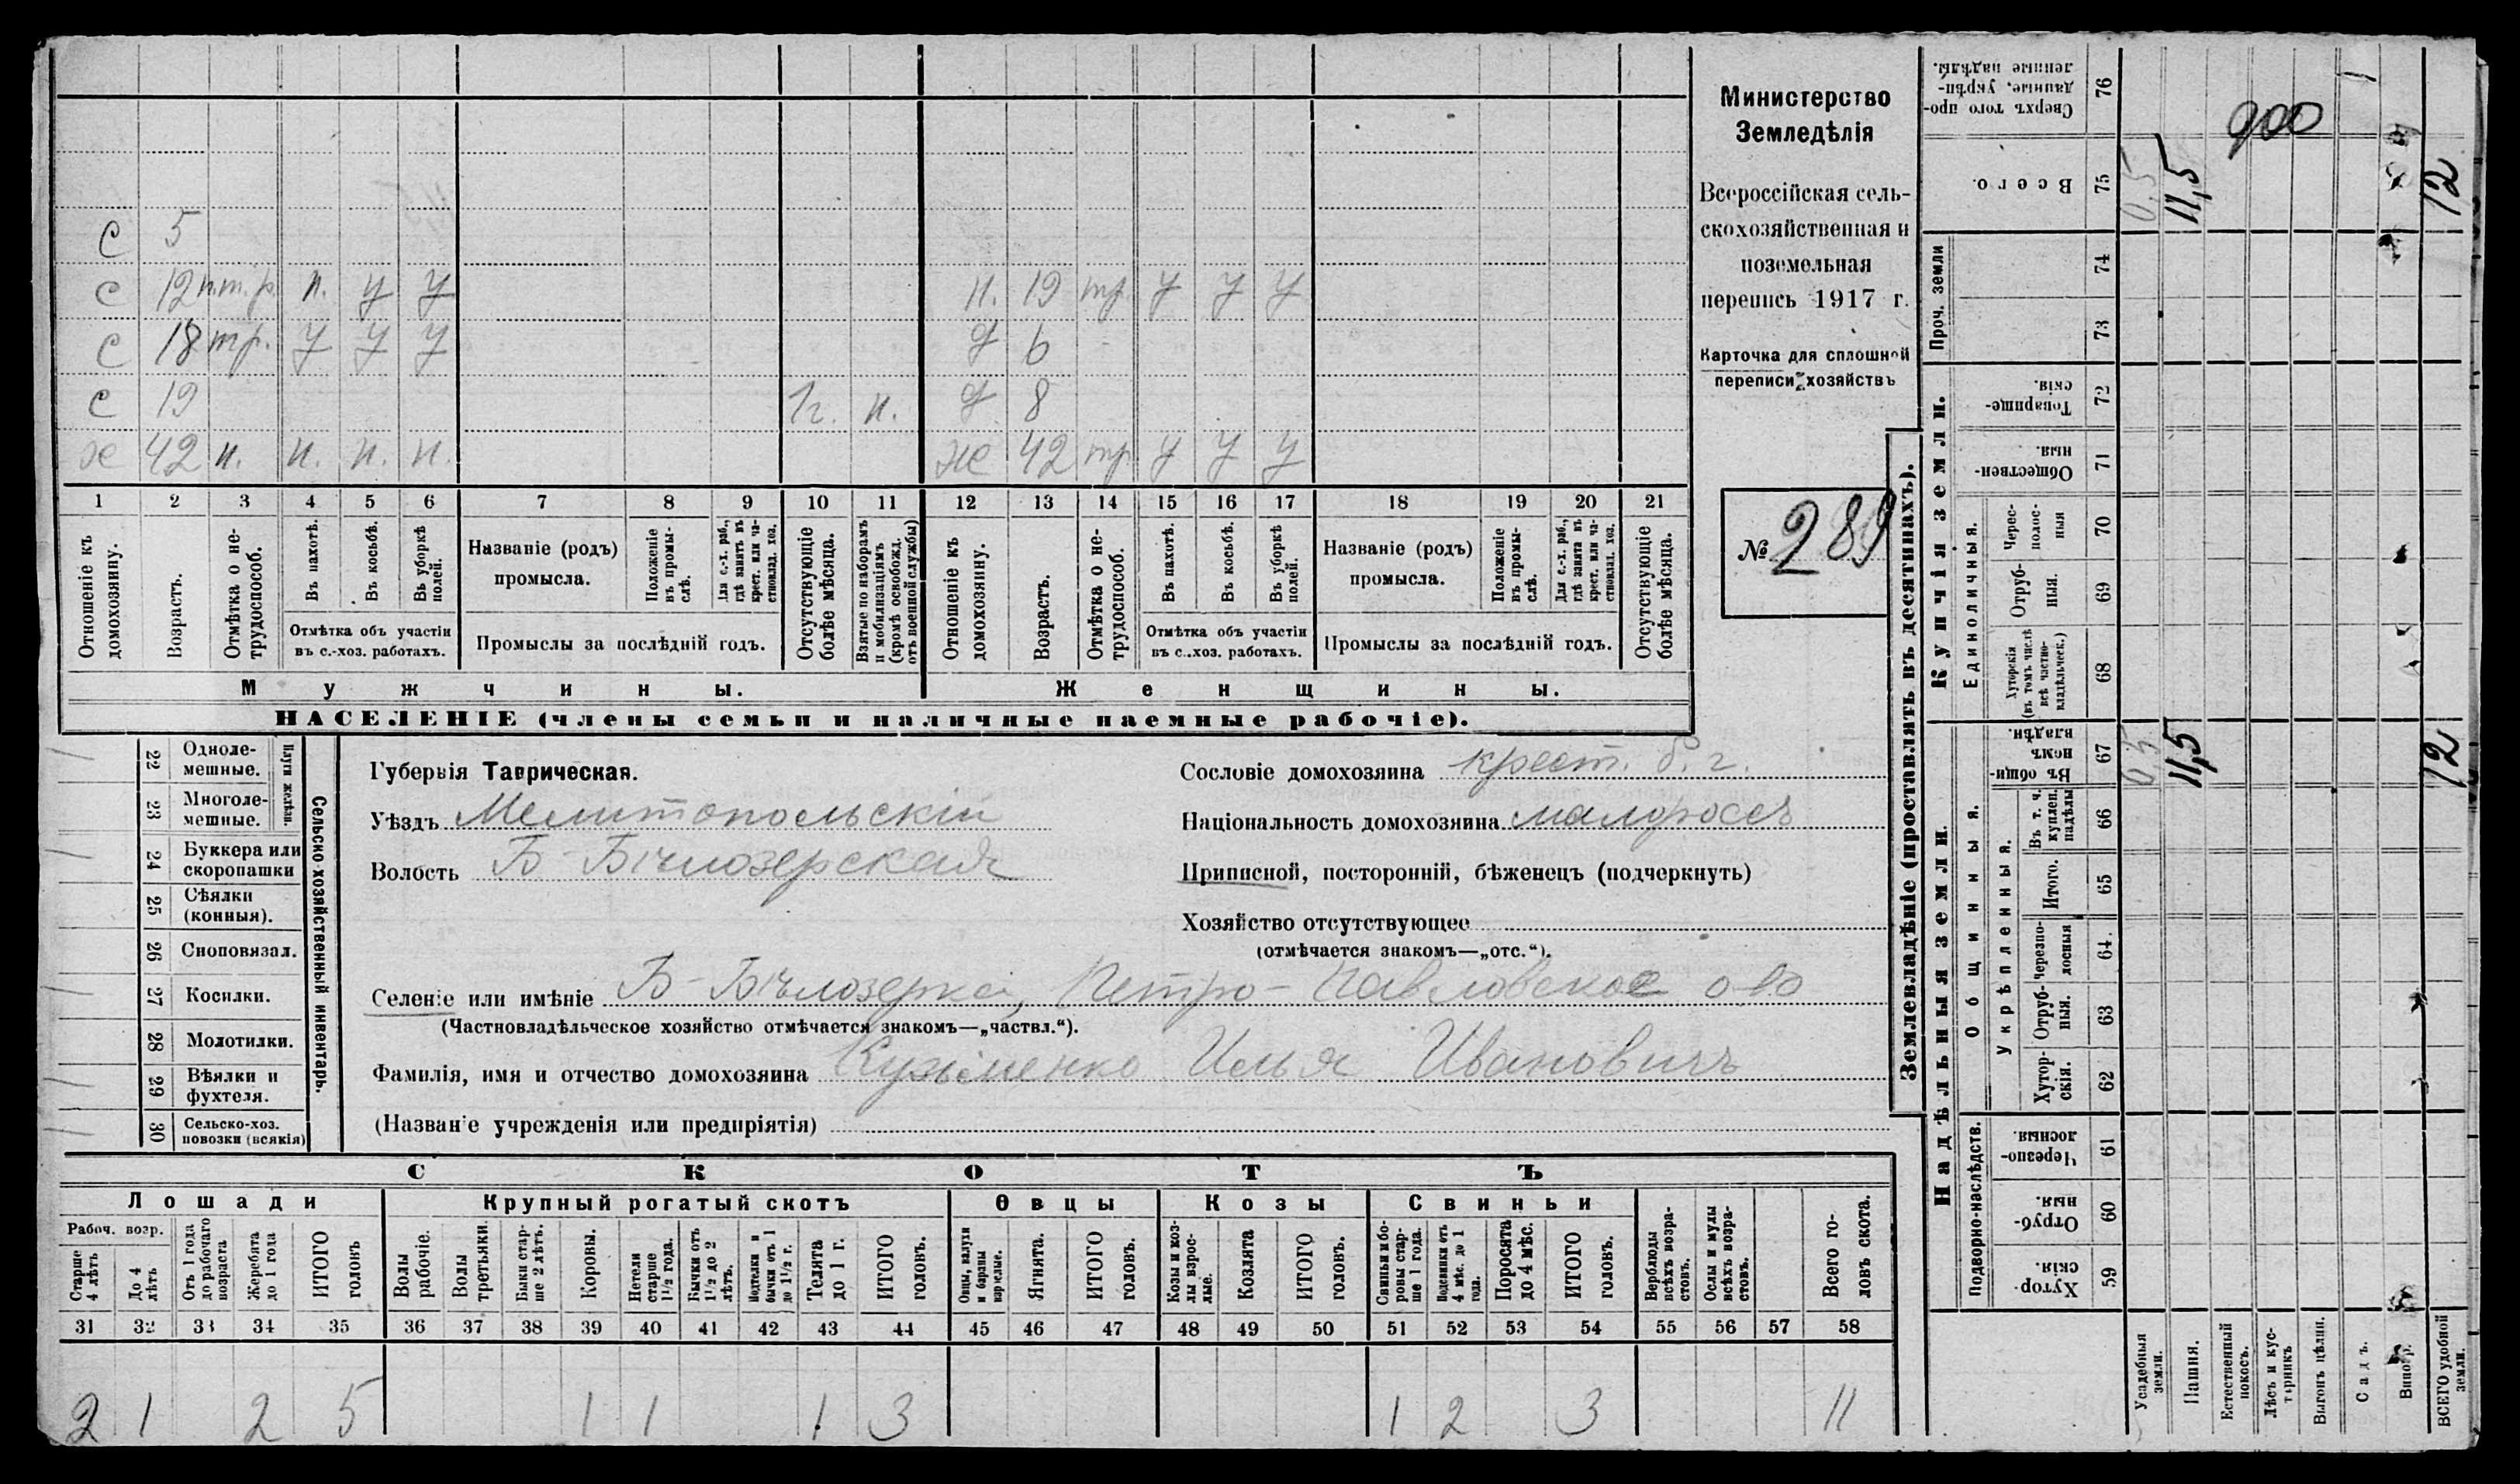 Министерство
Земледѣлія
Всероссійская сель-
скохозяйственная и
поземельная
перепись 1917 г.
Карточка для сплошной
переписи хозяйствъ
№ 289
с 5
с 12 п.т.р. п. у у
н. 19 тр. у у у
с 18 тр. у у у
д 6
с 19 1г. п.
д 8
х 42 н. н. н. н.
же 42 тр у у у
1 2 3 4 5 6 7 8 9 10 11 12 13 14 15 16 17 18 19 20 21
Отношеніе къ домохозяину.
Возрастъ.
Отмѣтка о не-трудоспособ.
Въ пахотѣ.
Въ косьбѣ.
Въ уборкѣ полей.
Отмѣтка объ участіи
въ с.-хоз. работахъ.
Названіе (родъ)
промысла.
Положеніе въ промы-слѣ.
Для с.-х. раб., гдѣ занятъ въ крест. или ча-стновлад. хоз.
Промыслы за послѣдній годъ.
Отсутствующіе болѣе мѣсяца.
Взятые по наборамъ и мобилизаціямъ (кромѣ освобожд. отъ военной службы)
Отношеніе къ домохозяину.
Возрастъ.
Отмѣтка о не-трудоспособ.
Въ пахотѣ.
Въ косьбѣ.
Въ уборкѣ полей.
Отмѣтка объ участіи
въ с.-хоз. работахъ.
Названіе (родъ)
промысла.
Положеніе въ промы-слѣ.
Для с.-х. раб., гдѣ занята въ крест. или ча-стновлад. хоз.
Промыслы за послѣдній годъ.
Отсутствующіе болѣе мѣсяца.
Мужчины.
Женщины.
НАСЕЛЕНІЕ (члены семьи и наличные наемные рабочіе).
22 Одноле-мешные.
23 Многоле-мешные.
Плуги желѣзн.
24 Буккера или скоропашки
25 Сѣялки (конныя).
26 Сноповязал.
27 Косилки.
28 Молотилки.
29 Вѣялки и фухтеля.
30 Сельско-хоз. повозки (всякія)
Сельско-хозяйственный инвентарь.
Губернія Таврическая.
Уѣздъ Мелитопольскій
Волость Б-Бѣлозерская
Сословіе домохозяина крест. б. г.
Національность домохозяина малороссъ
Приписной, посторонній, бѣженецъ (подчеркнуть)
Хозяйство отсутствующее
(отмѣчается знакомъ—„отс.“).
Селеніе или имѣніе Б-Бѣлозерка, Петро-Павловское о-во
(Частновладѣльческое хозяйство отмѣчается знакомъ—„частвл.“).
Фамилія, имя и отчество домохозяина Кузьменко Илья Ивановичъ
(Названіе учрежденія или предпріятія)
СКОТЪ
Лошади
Крупный рогатый скотъ
Овцы
Козы
Свиньи
Рабоч. возр.
Старше 4 лѣтъ
До 4 лѣтъ
Отъ 1 года до рабочаго возраста
Жеребята до 1 года
ИТОГО головъ
Волы рабочіе.
Волы третьяки.
Быки стар-ше 2 лѣтъ.
Коровы.
Нетели старше 1½ года.
Бычки отъ 1½ до 2 лѣтъ.
Подтелки и бычки отъ 1 до 1½ г.
Телята до 1 г.
ИТОГО головъ.
Овцы, валухи и бараны взрослые.
Ягнята.
ИТОГО головъ.
Козы и коз-лы взрос-лые.
Козлята
ИТОГО головъ.
Свиньи и бо-ровы стар-ше 1 года.
Подсвинки отъ 4 мѣс. до 1 года.
Поросята до 4 мѣс.
ИТОГО головъ.
Верблюды всѣхъ возра-стовъ.
Ослы и мулы всѣхъ возра-стовъ.
Всего го-ловъ скота.
31 32 33 34 35 36 37 38 39 40 41 42 43 44 45 46 47 48 49 50 51 52 53 54 55 56 57 58
2 1 2 5 1 1 1 3 1 2 3 11
Землевладѣніе (проставлять въ десятинахъ).
Надѣльныя земли.
Купчія земли.
Проч. земли
Подворно-наслѣдств.
Общинныя.
Укрѣпленныя.
Единоличныя.
Хутор-скія. 59
Отруб-ныя. 60
Черезпо-лосныя. 61
Хутор-скія. 62
Отруб-ныя. 63
Черезпо-лосныя 64
Итого. 65
Въ т. ч. куплен. надѣлы 66
Въ общи-номъ владѣн. 67
Хуторскія (въ томъ числѣ всѣ частно-владѣльческ.) 68
Отруб-ныя. 69
Черес-полос-ныя 70
Обществен-ныя. 71
Товарище-скія. 72
73
74
Всего. 75
Сверхъ того про-данные, укрѣп-ленные надѣлы. 76
Усадебныя земли.
Пашня.
Естественный покосъ.
Лѣсъ и кус-тарникъ
Выгонъ цѣлин.
Садъ.
Виногр.
ВСЕГО удобной земли.
0,5 11,5 12
0,5 11,5 12
900